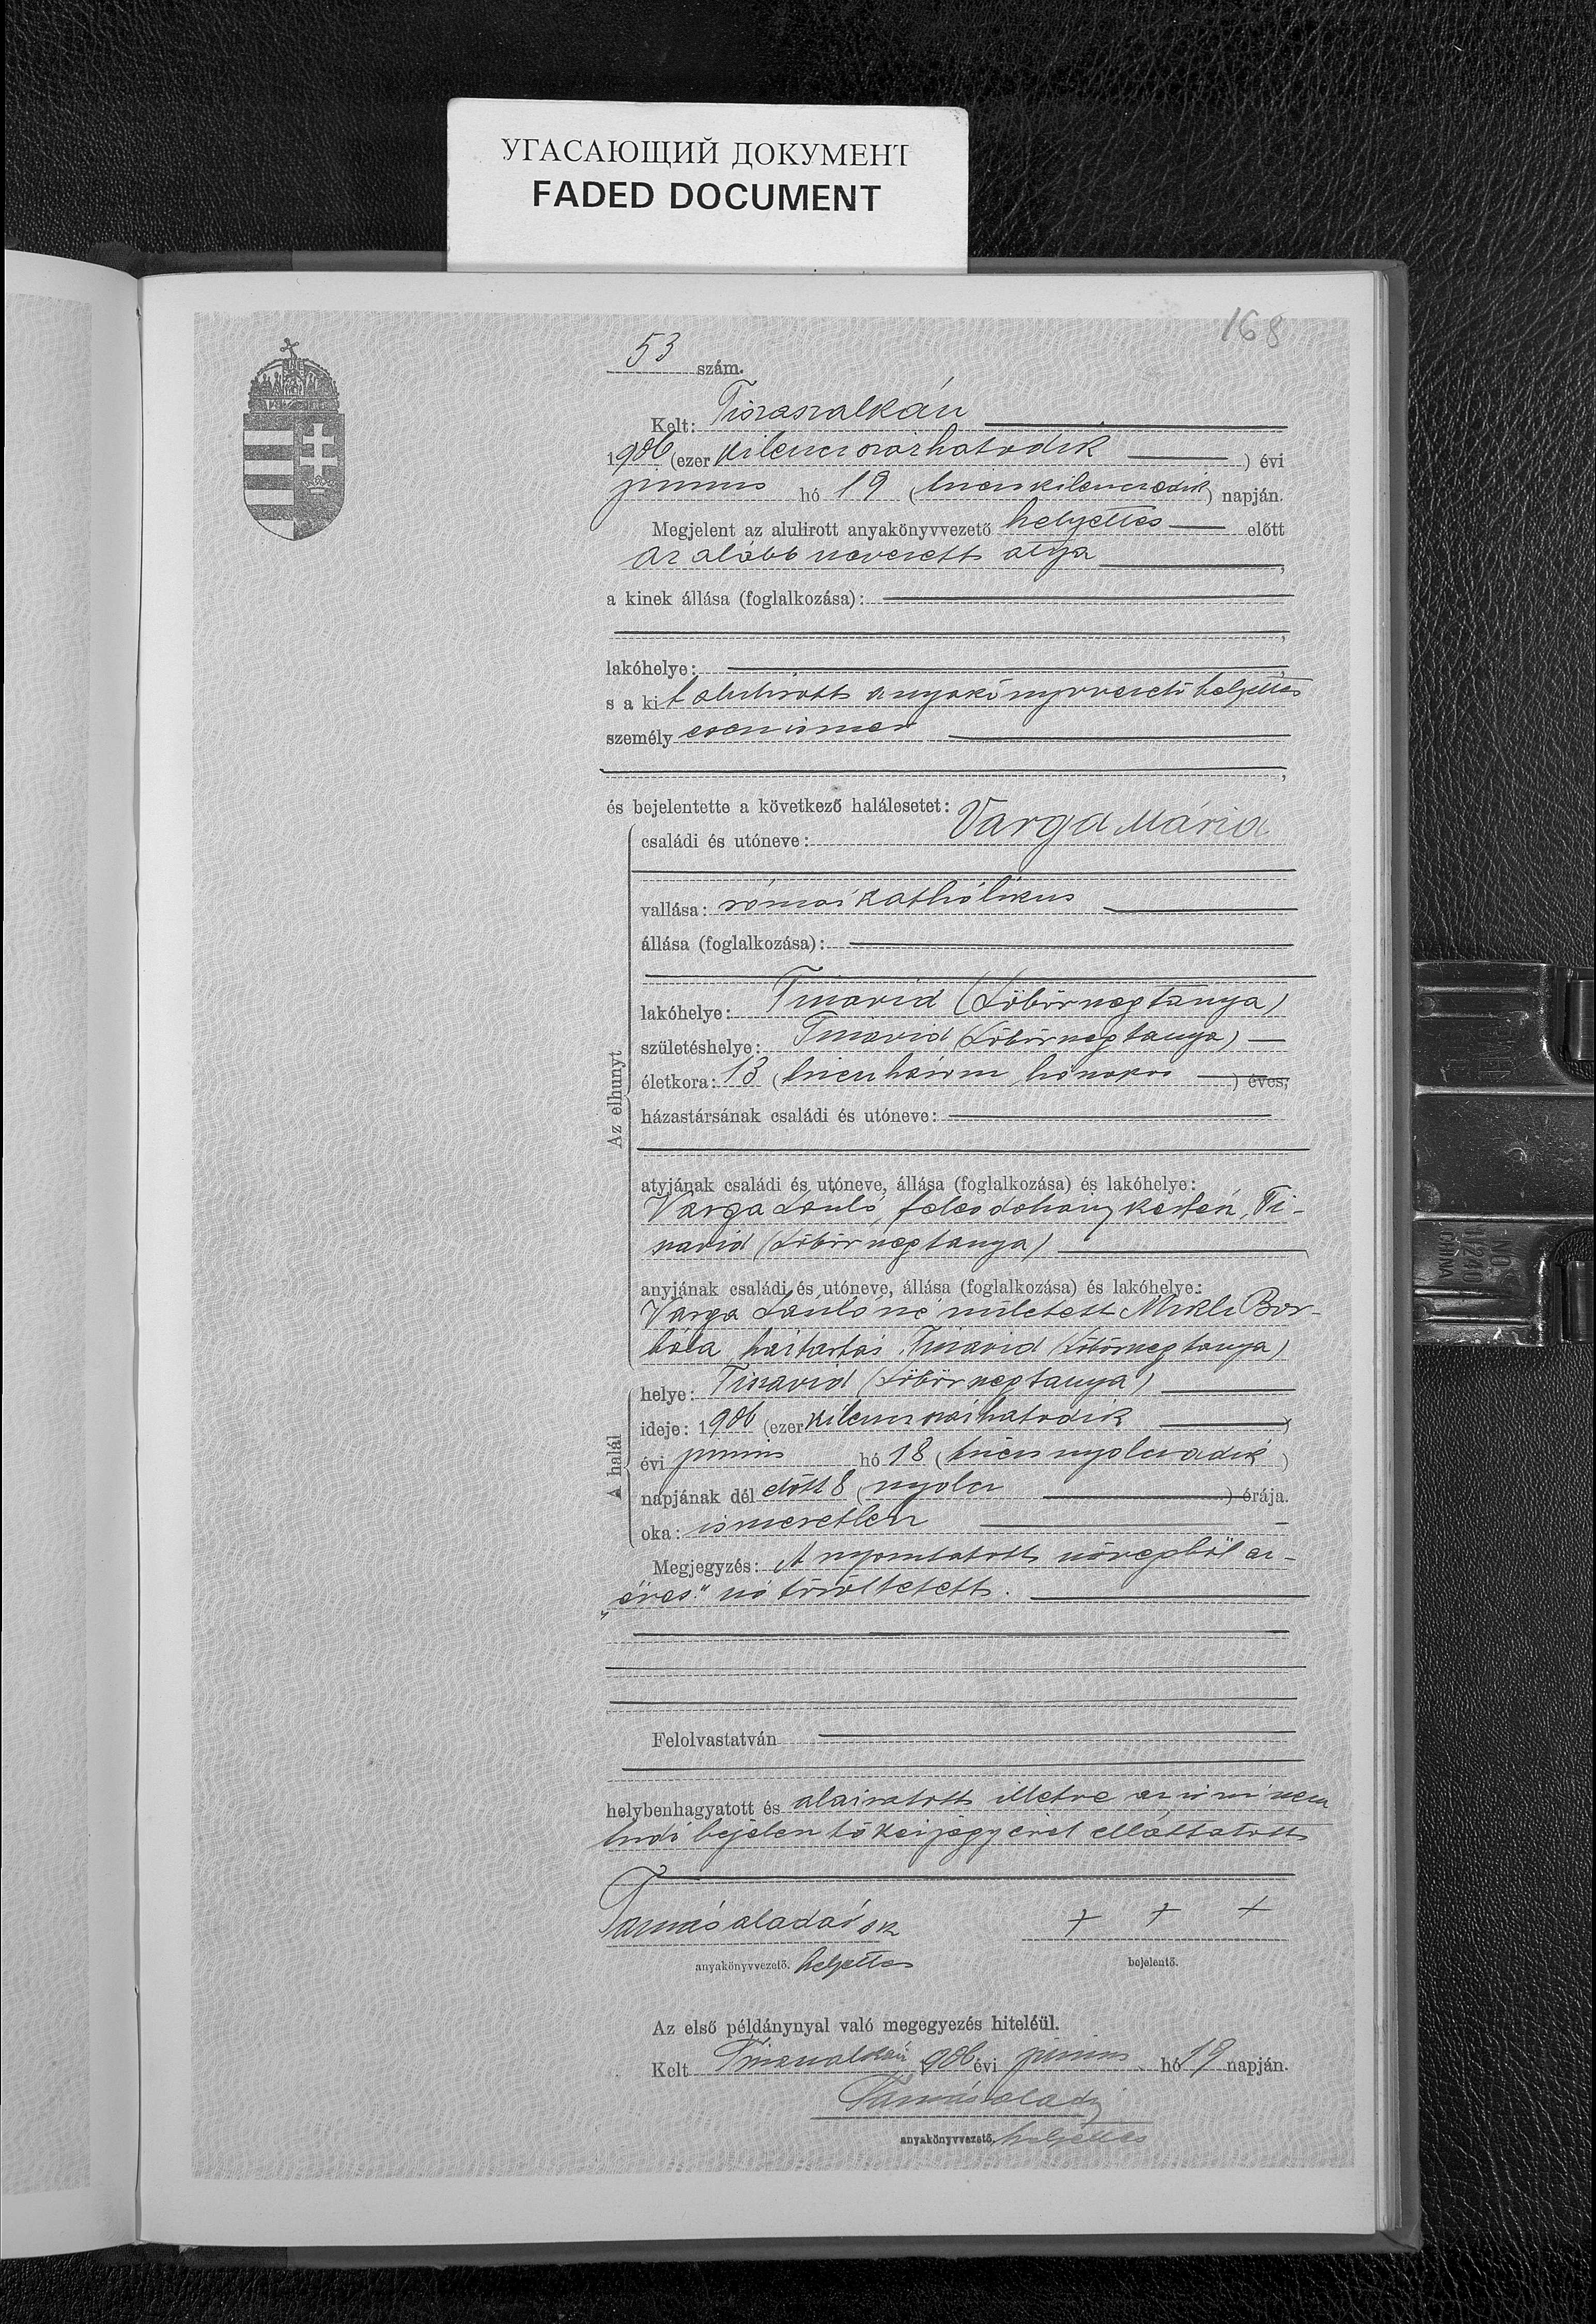 УГАСАЮЩИЙ ДОКУМЕНТ
FADED DOCUMENT
168
53 szám.
Kelt: Tiszaszalkán
1906 (ezer kilenczszázhatodik) évi
junius hó 19 (tizenkilenczedik) napján.
Megjelent az alulirott anyakönyvvezető helyettes előtt
az alább nevezett atya,
a kinek állása (foglalkozása):
lakóhelye:
s a kit alulirott anyakönyvvezető helyettes
személy esen ismer
és bejelentette a következő halálesetet:
Az elhunyt
családi és utóneve: Varga Mária
vallása: római katholikus
állása (foglalkozása):
lakóhelye: Tiszavid
születéshelye: Tiszavid
életkora: 13 (tizenhárom hónapos) éves;
házastársának családi és utóneve:
atyjának családi és utóneve, állása (foglalkozása) és lakóhelye:
Varga László, feles dohány kertész, Ti-
szavid
anyjának családi és utóneve, állása (foglalkozása) és lakóhelye:
Varga Lászlóné született Mikli Bor-
bála háztartás, Tiszavid
A halál
helye: Tiszavid
ideje: 1906 (ezer kilenczszázhatodik)
évi junius hó 18 (tizennyolczadik)
napjának dél előtt 8 (nyolcz) órája.
oka: ismeretlen
Megjegyzés: A nyomtatott szövegből az
"éves" szó töröltetett.
Felolvastatván
helybenhagyatott és aláiratott illetve az irni nem
tudó bejelentő kézjegyével elláttatott
Tamás Aladár sk + + +
anyakönyvvezető. helyettes bejelentő.
Az első példánynyal való megegyezés hiteléül.
Kelt Tiszaszalkán 1906 évi junius hó 19 napján.
Tamás Aladár
anyakönyvvezető. helyettes